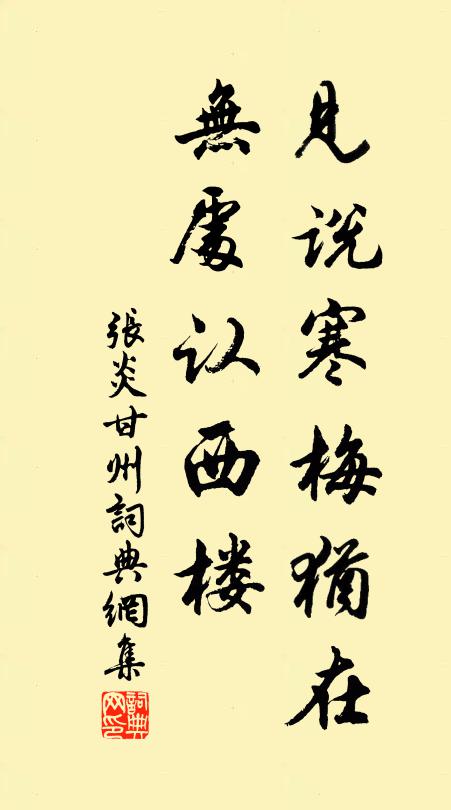 见说寒梅猶在
無處认西楼
張炎甘州詞典網集
詞典网印